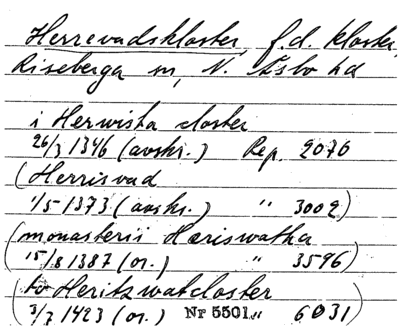 Herrevadskloster, f.d. kloster,
Riseberga sn, N. Åsbo hd
i Herwista closter
26/3 1346 (avskr.) Rep. 2076
(Herrisvad
1/5 1373 (avskr.) " 3002)
(monasterii Hæriswatha
15/8 1387 (or.) " 3596)
(to Heritzwatcloster
3/7 1423 (or.) Nr 5501 " 6031)